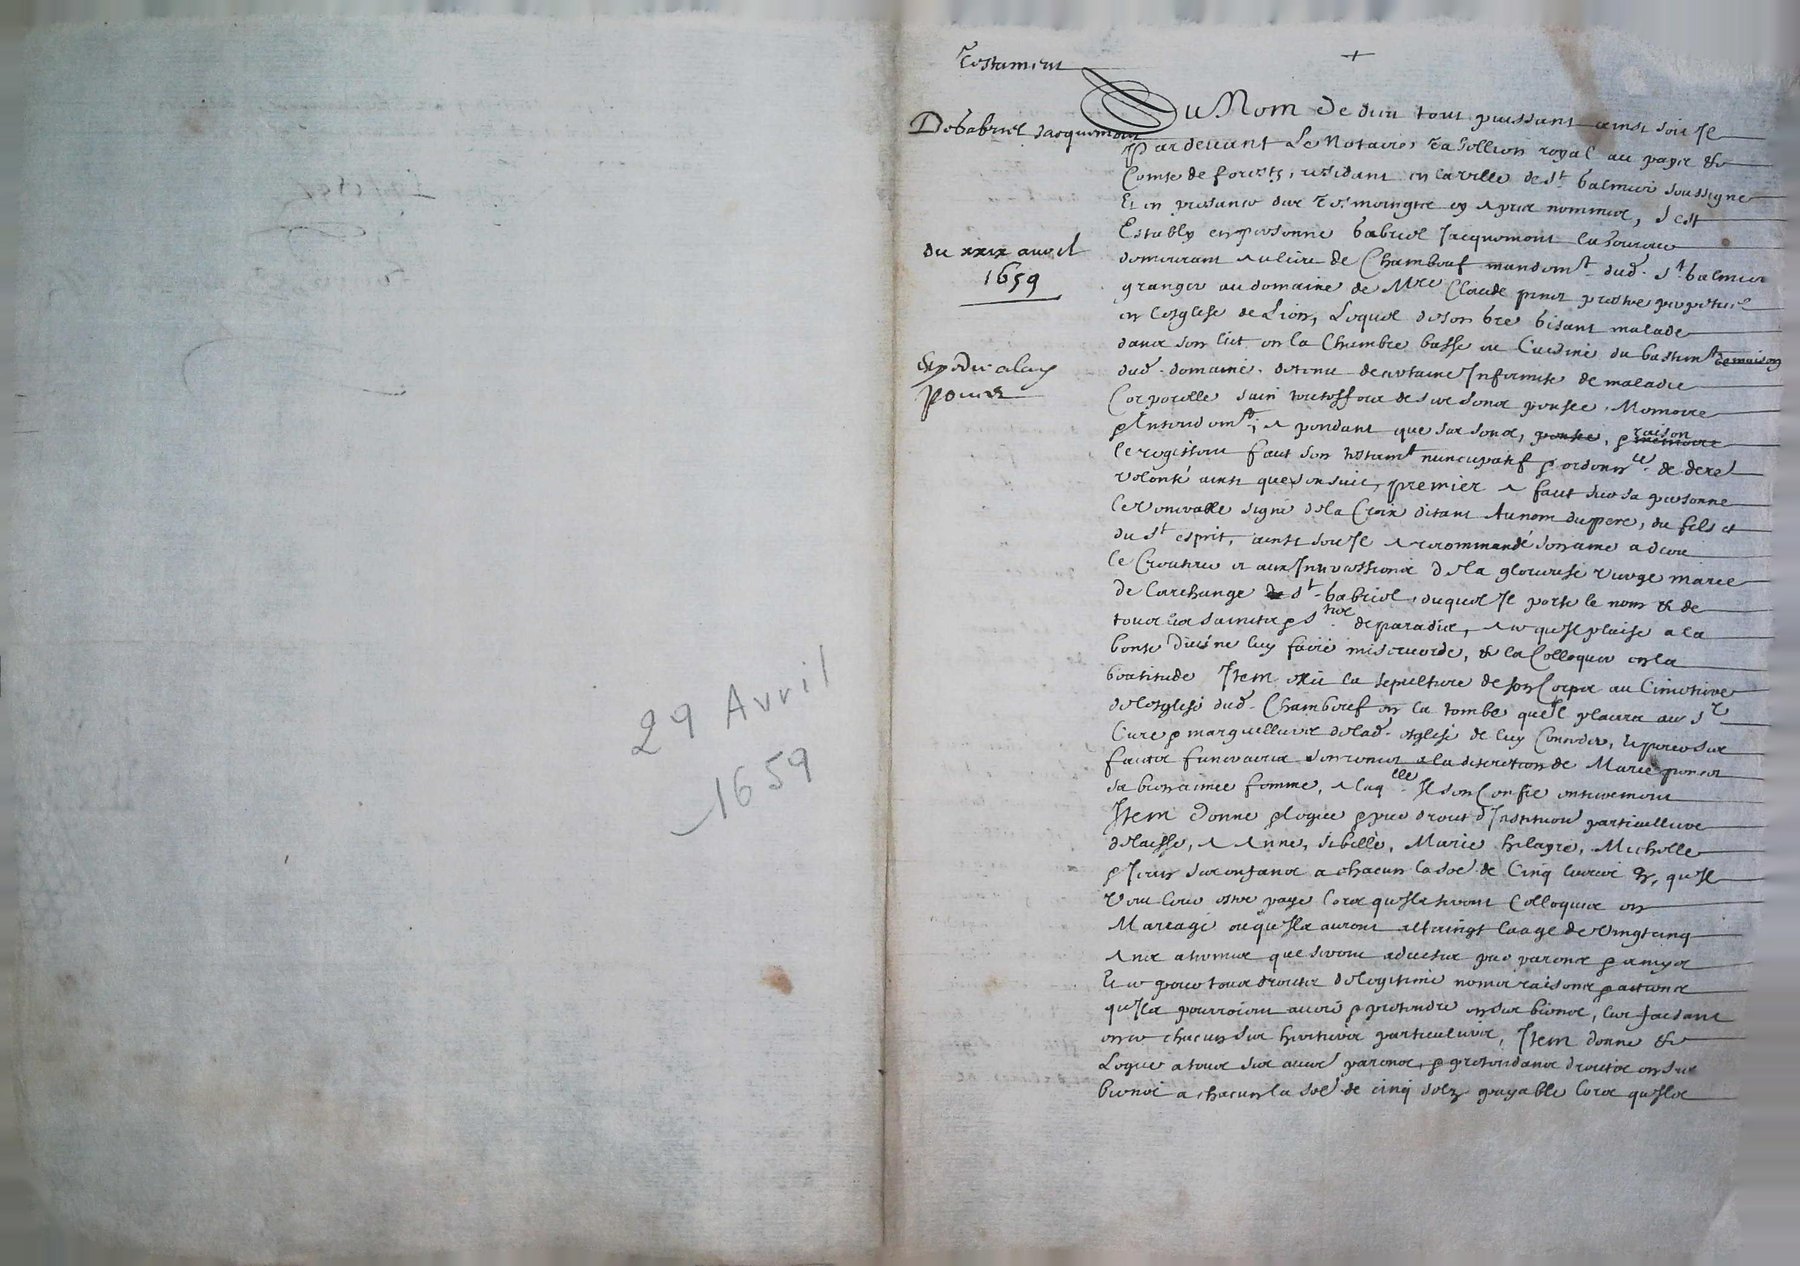 29 Avril
1659
Testament
De Gabriel Jacquemont
du xxix avril
1659
Expédié a lad
Poncet
+
Au Nom de dieu tout puissant ainsi soit Il
Pardevant Le Notaire, tabellion royal au payx &
Comte de forestz, residant en la ville de St galmier soussigne
Et en presance des tesmoingtz cy apres nommes, s'est
Estably en personne Gabriel Jacquemont laboureur
demeurant au lieu de Chambeuf mandemt dud. St galmier
granger au domaine de Mre Claude pretre perpetuel
en l'esglise de Lion, Lequel gisant malade
dans son lict en la Chambre basse ou Cuisine du bastimt de maison
dud. domaine detenu de certaine Infirmite de maladie
Corporelle sain touteffois de ses sens pensee, Memoire
& Entendemt, & pendant que ses sens, pensee, & memoire raison
le regissent faict son testamt nuncupatif & ordonnce de dere
volonté ainsi que s'en suit, premier a faict sur sa personne
le venerable signe de la Croix disant Au nom du pere, du fils et
du St esprit, ainsi soit Il a recommandé son ame a dieu
le Createur et aux Intercessions de la glorieuse vierge marie
de larchange de St gabriel, duquel Il porte le nom & de
tous les saincts & stes de paradix, a ce qu'Il plaise a la
bonte divine luy faire misericorde, & la Colloquer en la
beatitude Item eslit la sepulture de son Corps au Cimetiere
de lesglise dud. Chambeuf en la tombe qu'Il plaira au Sr
Cure & marguelliers de lad. esglise de luy Conceder, & pour ses
fraicts funeraires s'en remet a la discretion de Marie poncet
sa bien aimee femme, a laqlle Il s'en Confie entierement
Item donne & legue & par droict d'Institution particulliere
delaisse, a Anne, sibille, Marie hilayre, Michelle
& Jean ses enfans a chacun la soe de Cinq livres qu'Il
veut leur estre paye lors qu'Ils seront Colloques en
Mareage ou qu'Ils auront attaingt laage de Vingtcinq
Ans a termes que seront advises par parens & amys
Et ce pour tous droicts de legitime nomes raisons & actions
qu'Ils pourroient avoir & pretendre en ses biens, les faisant
en ce chacun ses heritiers particuliers, Item donne &
Legue a tous ses aues parens, & pretendans droicts en ses
biens a chacun la soe de cinq solz payable lors qu'Ils